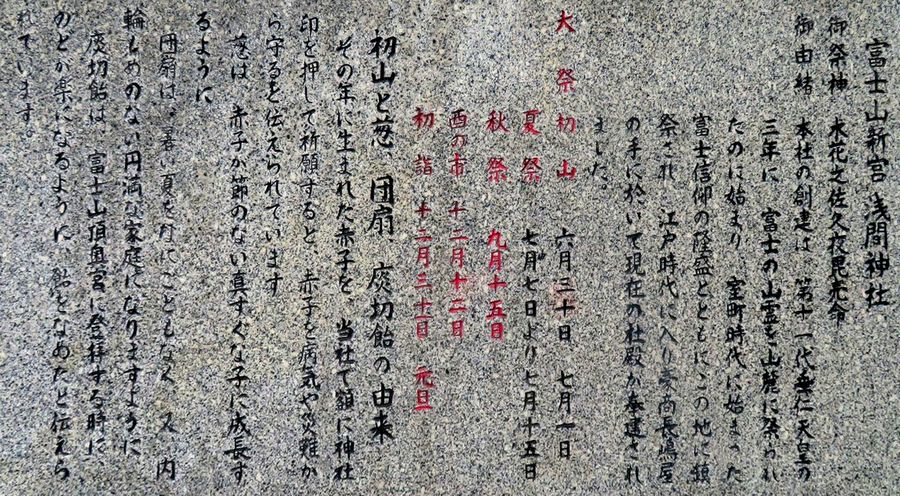 富士山新宮 浅間神社
御祭神 木花之佐久夜毘売命
御由緒 本社の創建は 第十一代垂仁天皇の
三年に 富士の山霊を山麓に祭られ
たのに始まり 室町時代に始まった
富士信仰の隆盛とともにこの地に鎮
祭され 江戸時代に入り 長嶋屋
の手に於いて現在の社殿が奉建され
ました。
大祭 初山 六月三十日 七月一日
夏祭 七月七日より七月十五日
秋祭 九月十五日
酉の市 十二月十二日
初詣 十二月三十一日 元旦
初山と葱、団扇、痰切飴の由来
その年に生まれた赤子を、当社で額に神社
印を押して祈願すると、赤子を病気や災難か
ら守ると伝えられています
葱は、赤子が節のない真すぐな子に成長す
るように
団扇は、暑い夏をなにごともなく、又、内
輪もめのない円満な家庭になりますように
痰切飴は、富士山頂奥宮に登拝する時に、
のどが楽になるように、飴をなめたと伝えら
れています。